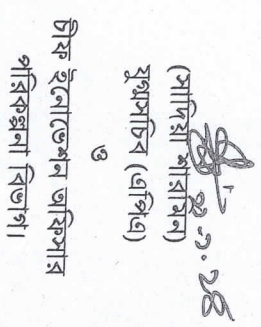 (সাদিয়া শারমিন)
যুগ্মসচিব (এপিএ)
ও
চীফ ইনোভেশন অফিসার
পরিকল্পনা বিভাগ।